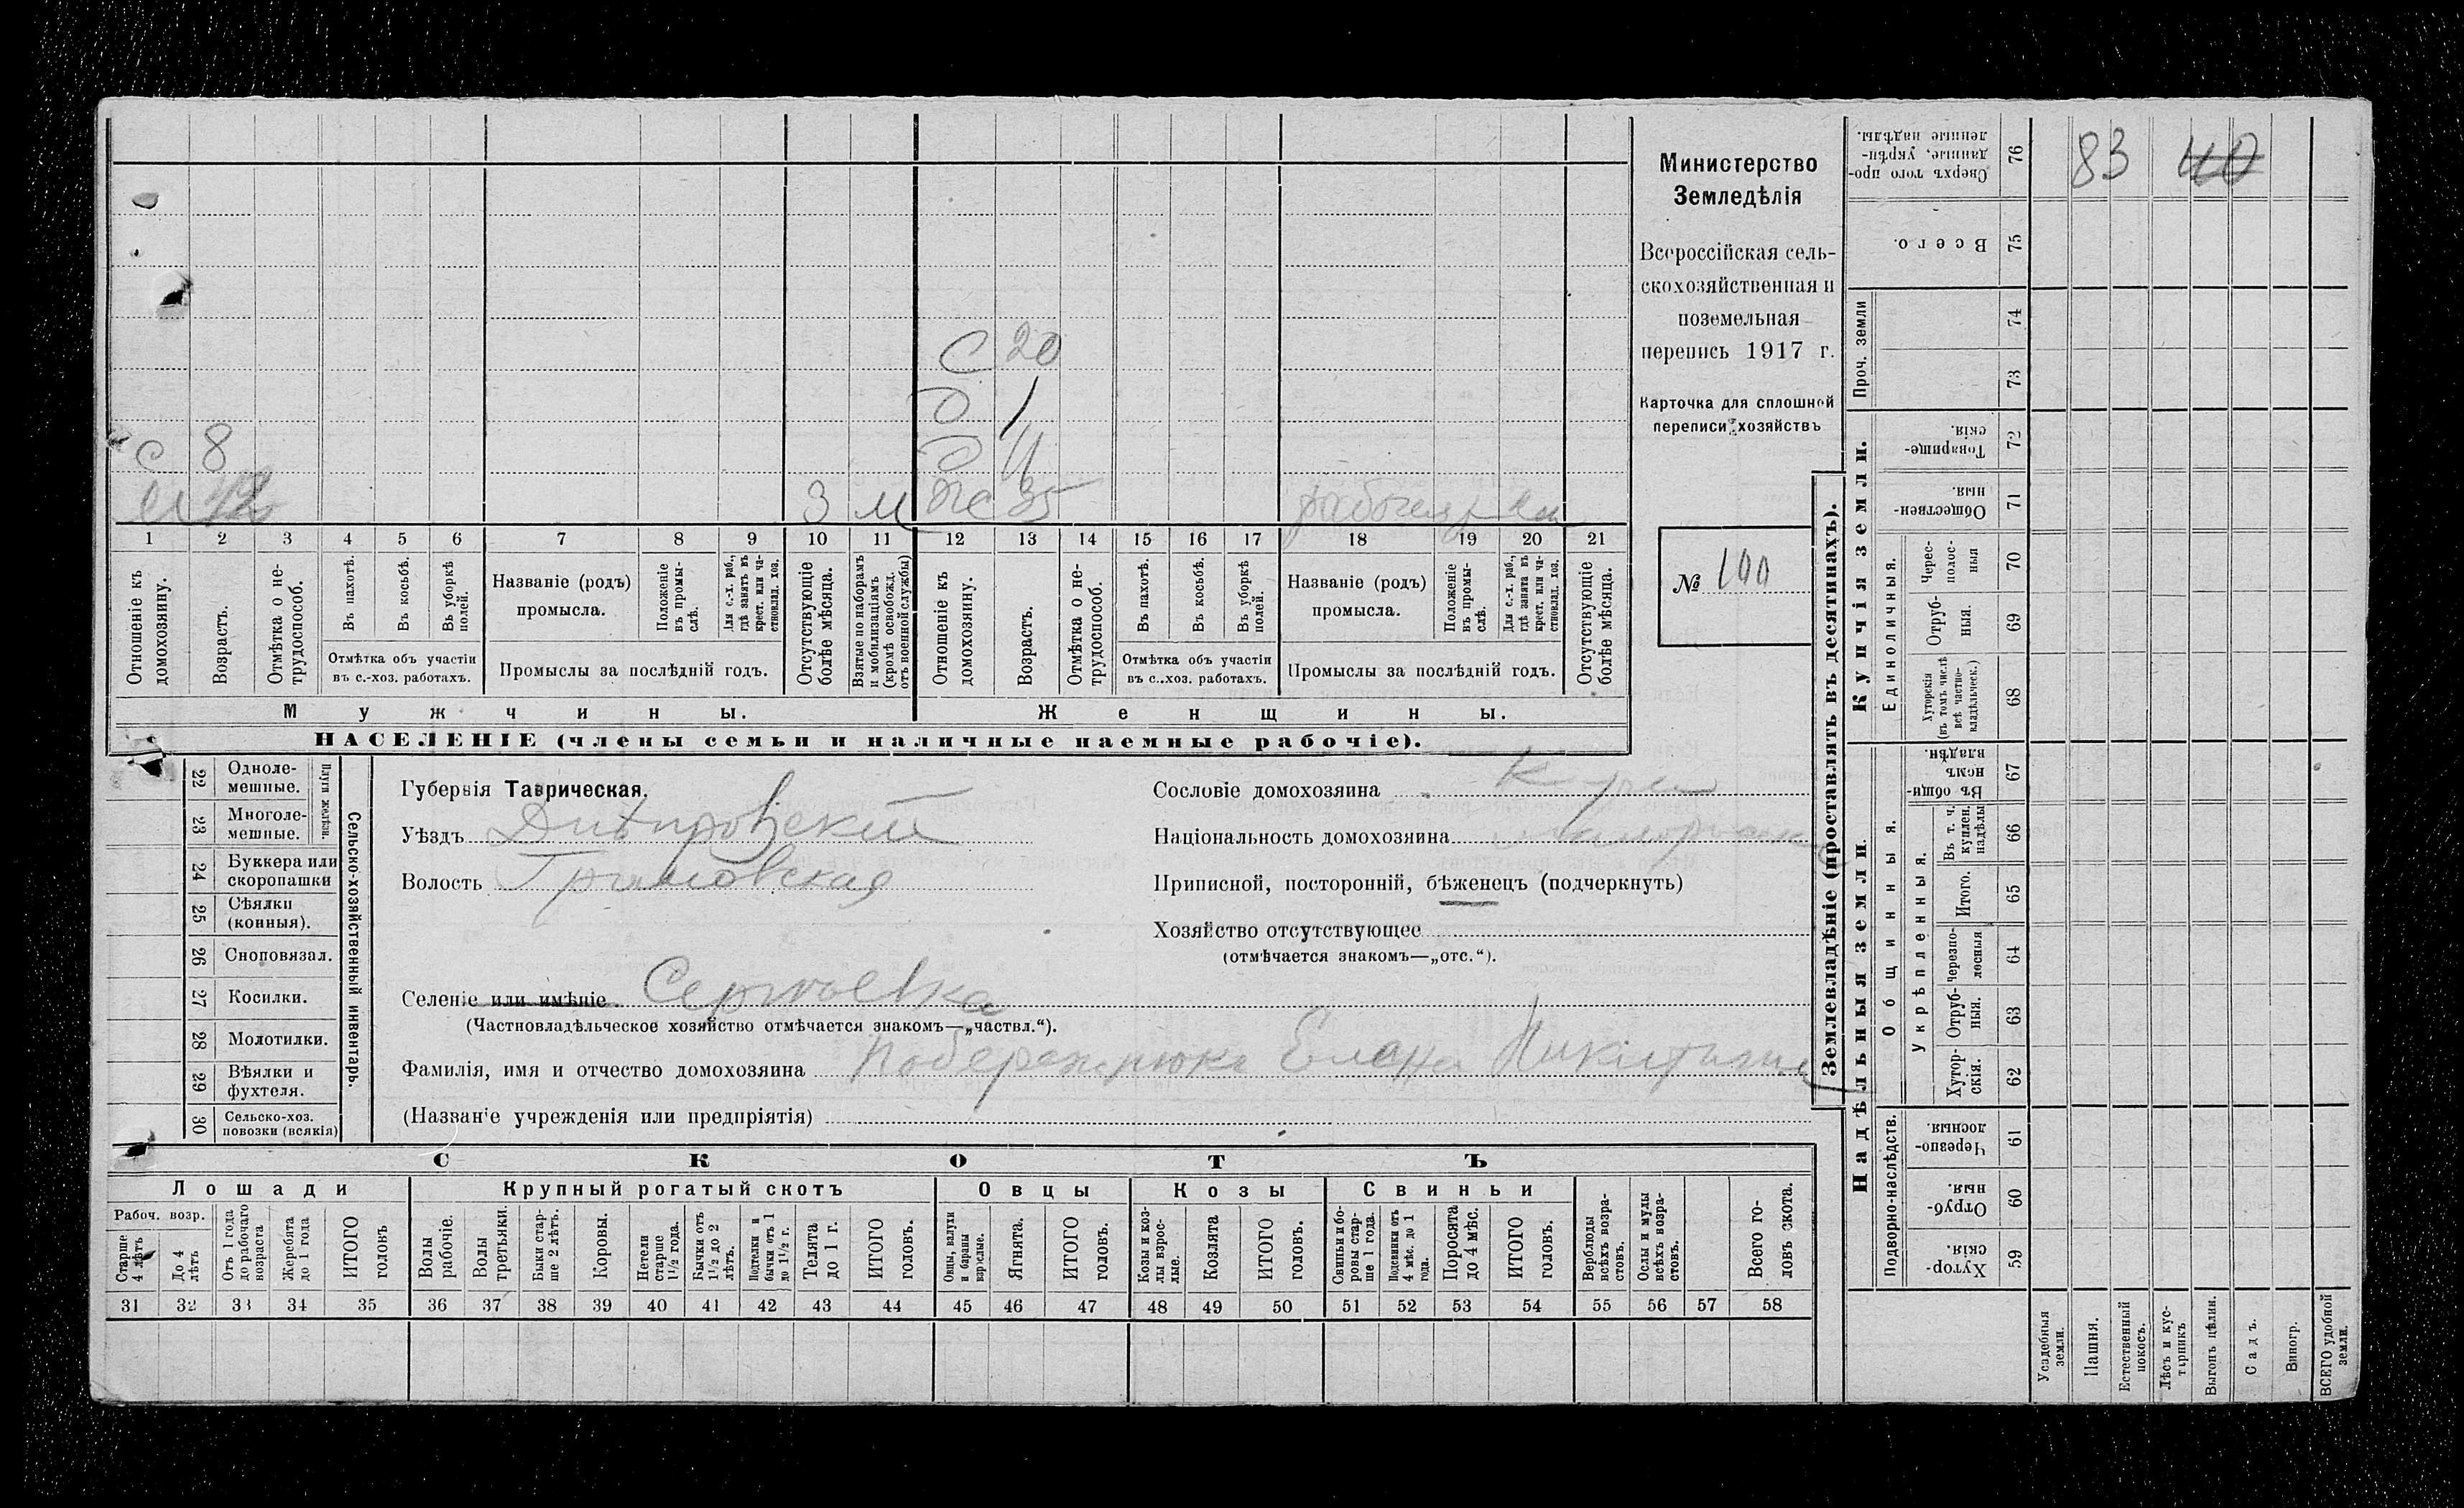 С 20
д 1
с 8 д 11
м 42 3 м ж 35
1 2 3 4 5 6 7 8 9 10 11 12 13 14 15 16 17 18 19 20 21
Отношеніе къ домохозяину.
Возрастъ.
Отмѣтка о не-трудоспособ.
Въ пахотѣ.
Въ косьбѣ.
Въ уборкѣ полей.
Отмѣтка объ участіи
въ с.-хоз. работахъ.
Названіе (родъ)
промысла.
Положеніе въ промы-слѣ.
Для с.-х. раб., гдѣ занятъ въ крест. или ча-стновлад. хоз.
Промыслы за послѣдній годъ.
Отсутствующіе болѣе мѣсяца.
Взятые по наборамъ и мобилизаціямъ (кромѣ освобожд. отъ военной службы)
Отношеніе къ домохозяину.
Возрастъ.
Отмѣтка о не-трудоспособ.
Въ пахотѣ.
Въ косьбѣ.
Въ уборкѣ полей.
Отмѣтка объ участіи
въ с..хоз. работахъ.
Названіе (родъ)
промысла.
Положеніе въ промы-слѣ.
Для с.-х. раб., гдѣ занята въ крест. или ча-стновлад. хоз.
Промыслы за послѣдній годъ.
Отсутствующіе болѣе мѣсяца.
Мужчины. Женщины.
НАСЕЛЕНІЕ (члены семьи и наличные наемные рабочіе).
Министерство
Земледѣлія
Всероссійская сель-
скохозяйственная и
поземельная
перепись 1917 г.
Карточка для сплошной
переписи хозяйствъ
№ 100
22 Одноле-мешные.
23 Многоле-мешные.
Плуги желѣзн.
24 Буккера или скоропашки
25 Сѣялки (конныя).
26 Сноповязал.
27 Косилки.
28 Молотилки.
29 Вѣялки и фухтеля.
30 Сельско-хоз. повозки (всякія)
Сельско-хозяйственный инвентарь.
Губернія Таврическая.
Уѣздъ Днѣпровскій
Волость
Сословіе домохозяина
Національность домохозяина
Приписной, посторонній, бѣженецъ (подчеркнуть)
Хозяйство отсутствующее
(отмѣчается знакомъ—„отс.“).
Селеніе или имѣніе Сергѣевка
(Частновладѣльческое хозяйство отмѣчается знакомъ—„частвл.“).
Фамилія, имя и отчество домохозяина Елена
(Названіе учрежденія или предпріятія)
СКОТЪ
Лошади Крупный рогатый скотъ Овцы Козы Свиньи
Рабоч. возр.
Старше 4 лѣтъ
До 4 лѣтъ
Отъ 1 года до рабочаго возраста
Жеребята до 1 года
ИТОГО головъ
Волы рабочіе.
Волы третьяки.
Быки стар-ше 2 лѣтъ.
Коровы.
Нетели старше 1½ года.
Бычки отъ 1½ до 2 лѣтъ.
Подтелки и бычки отъ 1 до 1½ г.
Телята до 1 г.
ИТОГО головъ.
Овцы, валухи и бараны взрослые.
Ягнята.
ИТОГО головъ.
Козы и коз-лы взрос-лые.
Козлята
ИТОГО головъ.
Свиньи и бо-ровы стар-ше 1 года.
Подсвинки отъ 4 мѣс. до 1 года.
Поросята до 4 мѣс.
ИТОГО головъ.
Верблюды всѣхъ возра-стовъ.
Ослы и мулы всѣхъ возра-стовъ.
Всего го-ловъ скота.
31 32 33 34 35 36 37 38 39 40 41 42 43 44 45 46 47 48 49 50 51 52 53 54 55 56 57 58
Землевладѣніе (проставлять въ десятинахъ).
Надѣльныя земли. Купчія земли. Проч. земли
Подворно-наслѣдств.
Общинныя.
Укрѣпленныя.
Единоличныя.
Хутор-скія. 59
Отруб-ныя. 60
Черезпо-лосныя. 61
Хутор-скія. 62
Отруб-ныя. 63
Черезпо-лосныя 64
Итого. 65
Въ т. ч. куплен. надѣлы 66
Въ общи-номъ владѣн. 67
Хуторскія (въ томъ числѣ всѣ частно-владѣльческ.) 68
Отруб-ныя. 69
Черес-полос-ныя 70
Обществен-ныя. 71
Товарище-скія. 72
73
74
Всего. 75
Сверхъ того про-данные, укрѣп-ленные надѣлы. 76
83 40
Усадебныя земли.
Пашня.
Естественный покосъ.
Лѣсъ и кус-тарникъ
Выгонъ цѣлин.
Садъ.
Виногр.
ВСЕГО удобной земли.